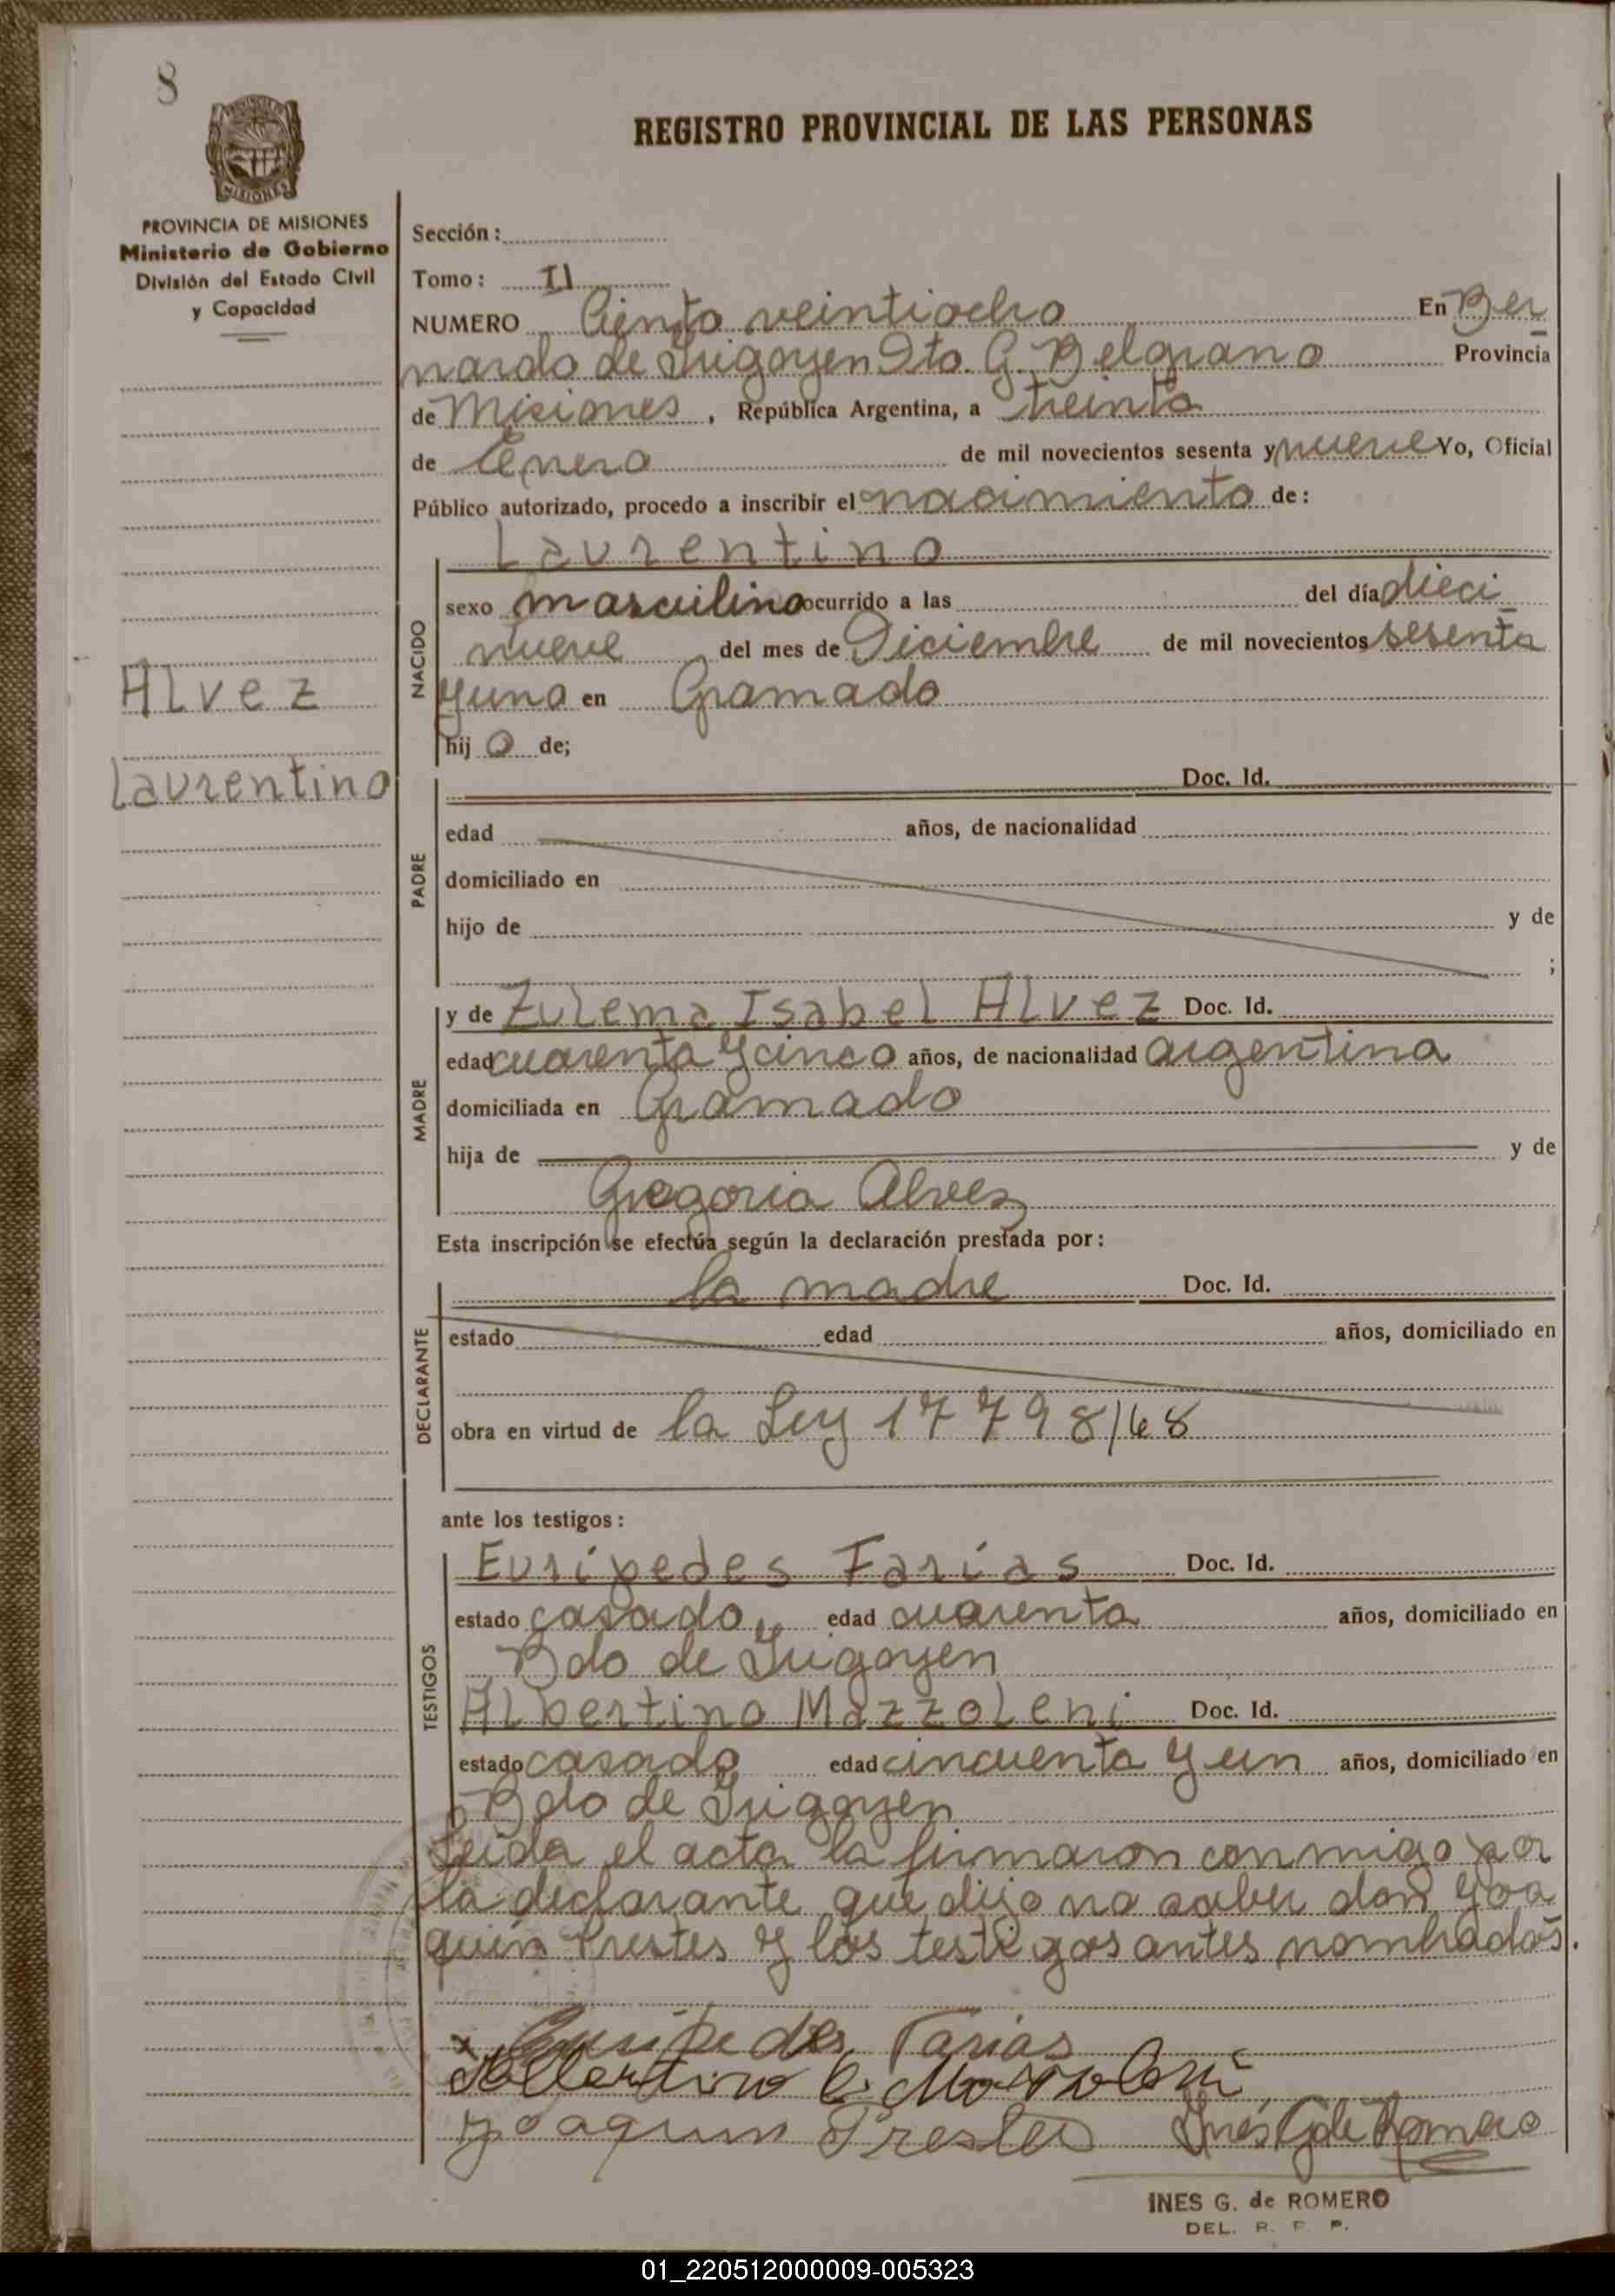 8
REGISTRO PROVINCIAL DE LAS PERSONAS
PROVINCIA DE MISIONES
Ministerio de Gobierno
División del Estado Civil
y Capacidad
Alvez
Laurentino
Sección:
Tomo: II
NUMERO Ciento veintiocho En Ber
nardo de Irigoyen Dto. G. Belgrano Provincia
de Misiones, República Argentina, a treinta
de Enero de mil novecientos sesenta y nueve Yo, Oficial
Público autorizado, procedo a inscribir el nacimiento de:
Laurentino
NACIDO
sexo masculino ocurrido a las del día dieci
nueve del mes de Diciembre de mil novecientos sesenta
y uno en Gramado
hijo de;
PADRE
Doc. Id.
edad años, de nacionalidad
domiciliado en
hijo de y de
;
MADRE
y de Zulema Isabel Alvez Doc. Id.
edad cuarenta y cinco años, de nacionalidad argentina
domiciliada en Gramado
hija de y de
Gregoria Alvez
Esta inscripción se efectúa según la declaración prestada por:
DECLARANTE
la madre Doc. Id.
estado edad años, domiciliado en
obra en virtud de la Ley 17798/68
ante los testigos:
TESTIGOS
Eurípedes Farías Doc. Id.
estado casado edad cuarenta años, domiciliado en
Bdo de Irigoyen
Albertino Mazzoleni Doc. Id.
estado casado edad cincuenta y un años, domiciliado en
Bdo de Irigoyen
Leida el acta la firmaron conmigo por
la declarante que dijo no saber don Joa
quín Prestes y los testigos antes nombrados.
x Euripedes Farias
Albertino Mazzoleni
Joaquin Prestes Inés G de Romero
INES G. de ROMERO
DEL. R. P. P.
01_220512000009-005323